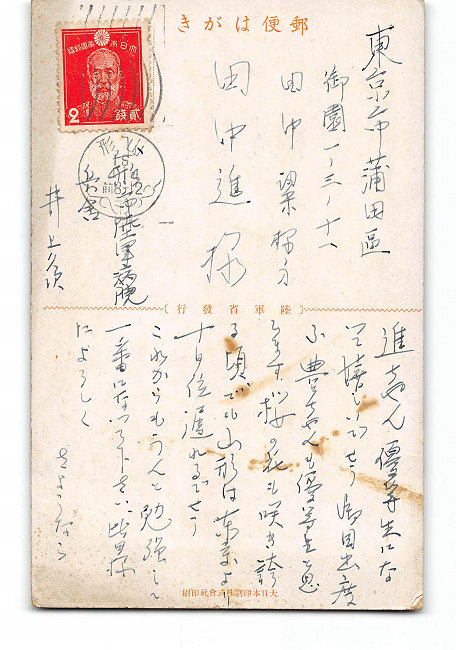 郵便はがき
大日本帝國郵便
2
貳
錢
形
東京市蒲田區
御園一ノ三ノ十八
田中
方
田中進様
山形市陸軍病院
兵舎
井上
陸軍省發行
進ちやん優等生にな
つて嬉しいでせう 御目出度
豊ちやんも優等生
ます 桜の花も咲き誇
る頃でも山形は東京より
十日位遅れるでせう
これからもうんと勉強して
一番になつて下さい 皆様
によろしく
さようなら
大日本印刷株式會社印刷